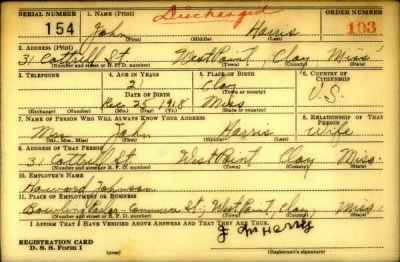 SERIAL NUMBER 1. NAME (Print) Discharged ORDER NUMBER
154 John Harris 103
(First) (Middle) (Last)
2. ADDRESS (Print)
31 Cottrell St West Point, Clay Miss.
(Number and street or R. F. D. number) (Town) (County) (State)
3. TELEPHONE 4. AGE IN YEARS 5. PLACE OF BIRTH 6. COUNTRY OF CITIZENSHIP
21 Clay
DATE OF BIRTH (Town or county)
Dec. 25 1918 Miss U.S.
(Exchange) (Number) (Mo.) (Day) (Yr.) (State or country)
7. NAME OF PERSON WHO WILL ALWAYS KNOW YOUR ADDRESS 8. RELATIONSHIP OF THAT PERSON
Mrs. John Harris Wife
(Mr., Mrs., Miss) (First) (Middle) (Last)
9. ADDRESS OF THAT PERSON
31 Cottrell St West Point Clay Miss.
(Number and street or R. F. D. number) (Town) (County) (State)
10. EMPLOYER'S NAME
Howard Johnson
11. PLACE OF EMPLOYMENT OR BUSINESS
Bowling Parlor - Commerce St., West Point, Clay, Miss.
(Number and street or R. F. D. number) (Town) (County) (State)
I AFFIRM THAT I HAVE VERIFIED ABOVE ANSWERS AND THAT THEY ARE TRUE.
REGISTRATION CARD
D. S. S. Form 1 (over) (Registrant's signature)